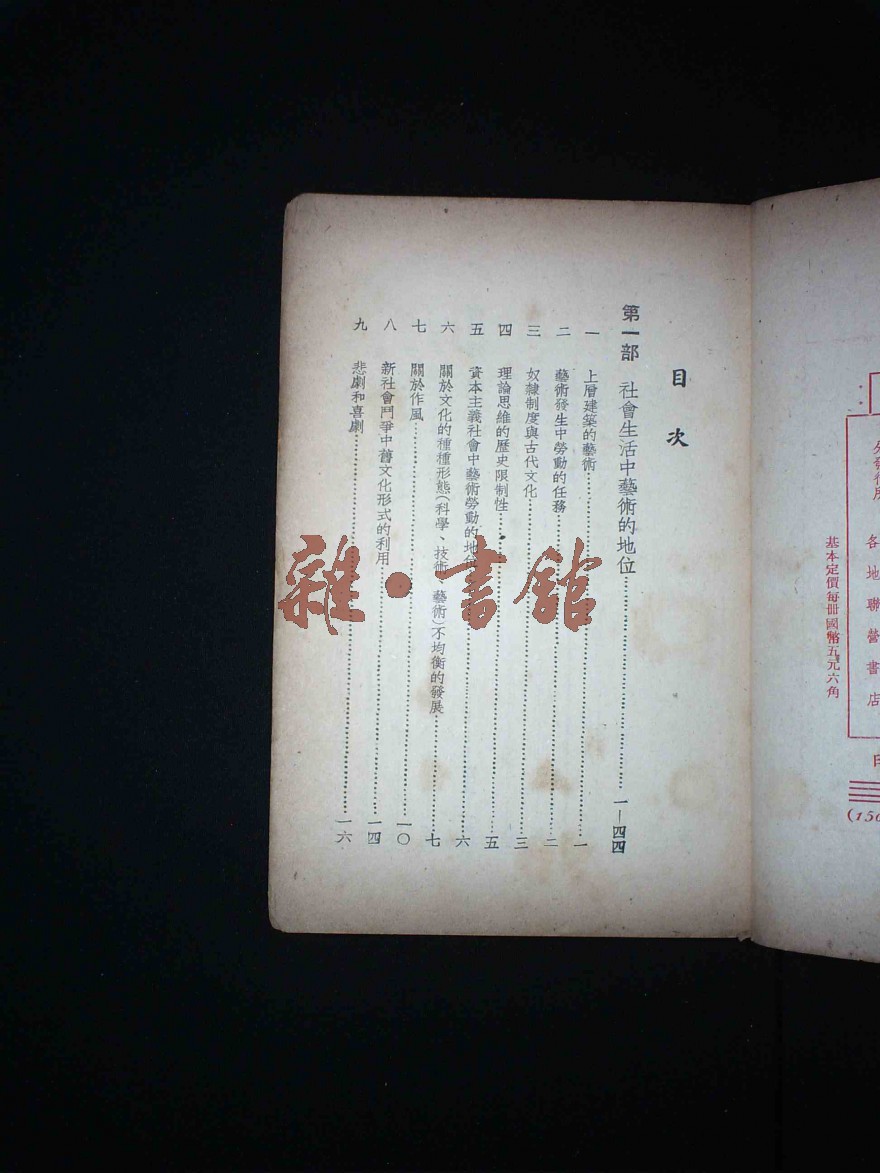 目次
第一部 社會生活中藝術的地位……………一—四四
一 上層建築的藝術……………一
二 藝術發生中勞動的任務……………二
三 奴隸制度與古代文化……………三
四 理論思維的歷史限制性……………五
五 資本主義社會中藝術勞動的地位……………六
六 關於文化的種種形態(科學、技術、藝術)不均衡的發展……………七
七 關於作風……………一〇
八 新社會鬥爭中舊文化形式的利用……………一四
九 悲劇和喜劇……………一六
雜•書館
各地聯營書店
基本定價每冊國幣五元六角
(150